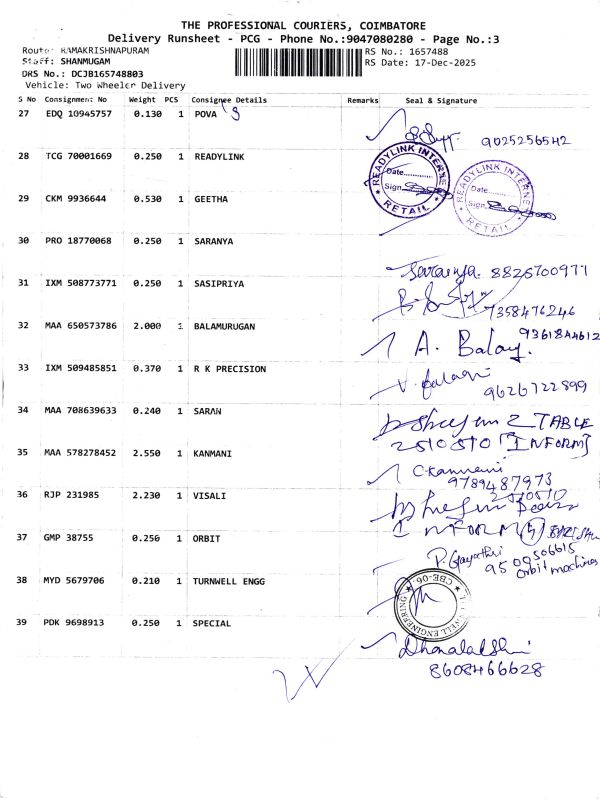 THE PROFESSIONAL COURIERS, COIMBATORE
Delivery Runsheet - PCG - Phone No.:9047080280 - Page No.:3
Route: RAMAKRISHNAPURAM RS No.: 1657488
Staff: SHANMUGAM RS Date: 17-Dec-2025
DRS No.: DCJB165748803
Vehicle: Two Wheeler Delivery
S No Consignment No Weight PCS Consignee Details Remarks Seal & Signature
27 EDQ 10945757 0.130 1 POVA
9025256542
28 TCG 70001669 0.250 1 READYLINK
READYLINK INTERNET RETAIL Date........... Sign
READYLINK INTERNET RETAIL Date........... Sign
29 CKM 9936644 0.530 1 GEETHA
30 PRO 18770068 0.250 1 SARANYA
Saranya. 8826700971
31 IXM 508773771 0.250 1 SASIPRIYA
7358476246
32 MAA 650573786 2.000 1 BALAMURUGAN
9361844612
A. Balay.
33 IXM 509485851 0.370 1 R K PRECISION
V. Balagi
9626722899
34 MAA 708639633 0.240 1 SARAN
TABLE
2510510 [INFORM]
35 MAA 578278452 2.550 1 KANMANI
C.Kanmani
9789487973
2510510
36 RJP 231985 2.230 1 VISALI
INFORM
37 GMP 38755 0.250 1 ORBIT
P. Gayathri
9509506615
orbit machines
38 MYD 5679706 0.210 1 TURNWELL ENGG
TURNWELL ENGINEERING CBE-06
39 PDK 9698913 0.250 1 SPECIAL
Dhanalakshmi
8608466628